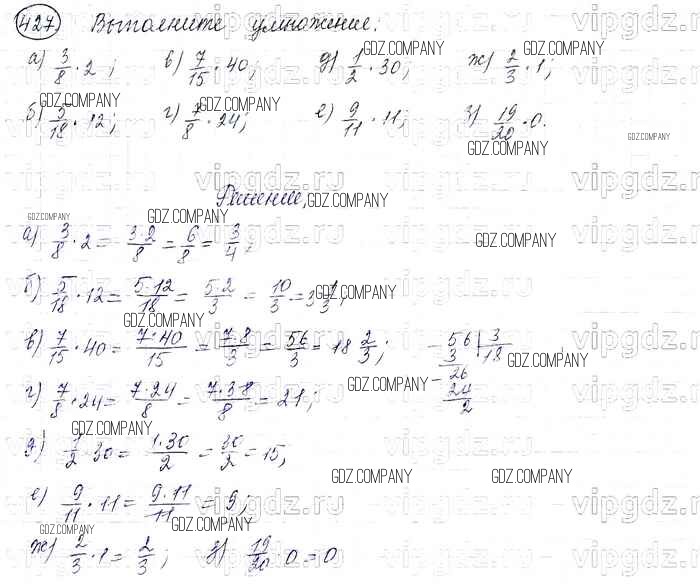 427 Выполните умножение:
а) 3/8 · 2; в) 7/15 · 40; д) 1/2 · 30; ж) 2/3 · 1;
б) 5/18 · 12; г) 7/8 · 24; е) 9/11 · 11; з) 19/20 · 0.
Решение,
а) 3/8 · 2 = 3·2/8 = 6/8 = 3/4;
б) 5/18 · 12 = 5·12/18 = 5·2/3 = 10/3 = 3 1/3;
в) 7/15 · 40 = 7·40/15 = 7·8/3 = 56/3 = 18 2/3;
56 | 3
3 | 18
26
24
2
г) 7/8 · 24 = 7·24/8 = 7·3·8/8 = 21;
д) 1/2 · 30 = 1·30/2 = 30/2 = 15;
е) 9/11 · 11 = 9·11/11 = 9;
ж) 2/3 · 1 = 2/3; з) 19/20 · 0 = 0
GDZ.COMPANY
vipgdz.ru